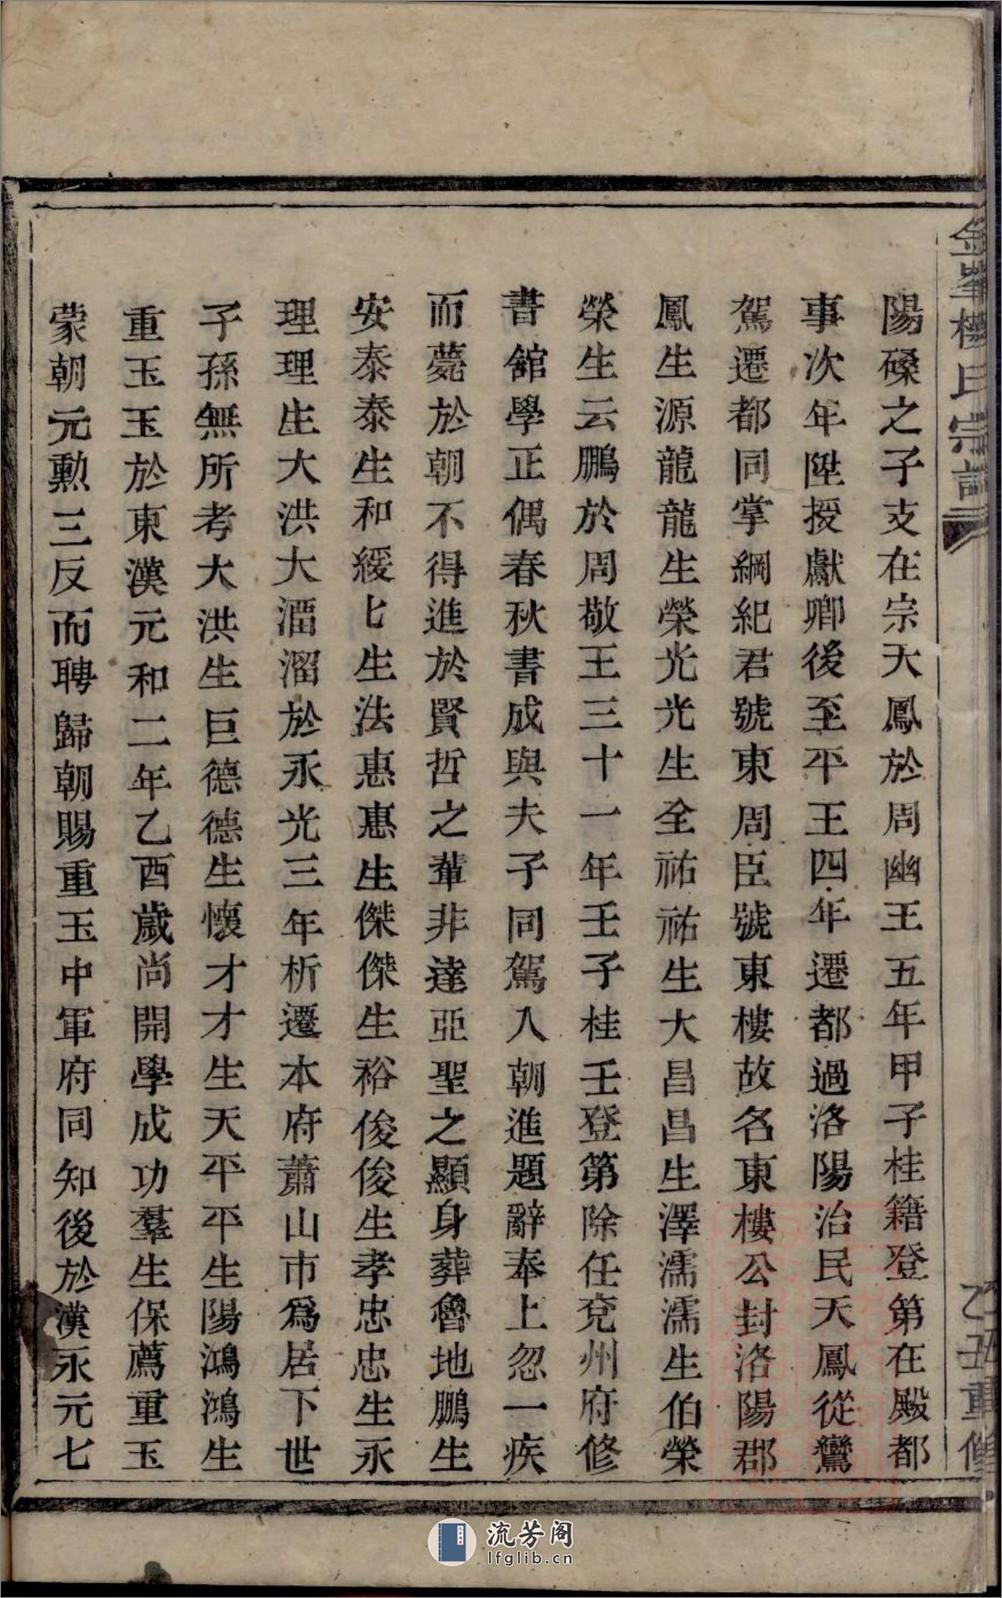 金峯樓氏宗譜
乙丑重修
陽磉之子支在宗天鳳於周幽王五年甲子桂籍登第在殿都
事次年陞授獻卿後至平王四年遷都過洛陽治民天鳳從鸞
駕遷都同掌綱紀君號東周臣號東樓故名東樓公封洛陽郡
鳳生源龍龍生榮光光生全祐祐生大昌昌生澤濡濡生伯榮
榮生云鵬於周敬王三十一年壬子桂壬登第除任兗州府修
書舘學正偶春秋書成與夫子同駕入朝進題辭奉上忽一疾
而薨於朝不得進於賢哲之輩非達亞聖之顯身葬魯地鵬生
安泰泰生和緩匕生法惠惠生傑傑生裕俊俊生孝忠忠生永
理理生大洪大湎溜於永光三年析遷本府蕭山市爲居下世
子孫無所考大洪生巨德德生懷才才生天平平生陽鴻鴻生
重玉玉於東漢元和二年乙酉歲尚開學成功羣生保薦重玉
蒙朝元勲三反而聘歸朝賜重玉中軍府同知後於漢永元七
流芳阁
lfglib.cn